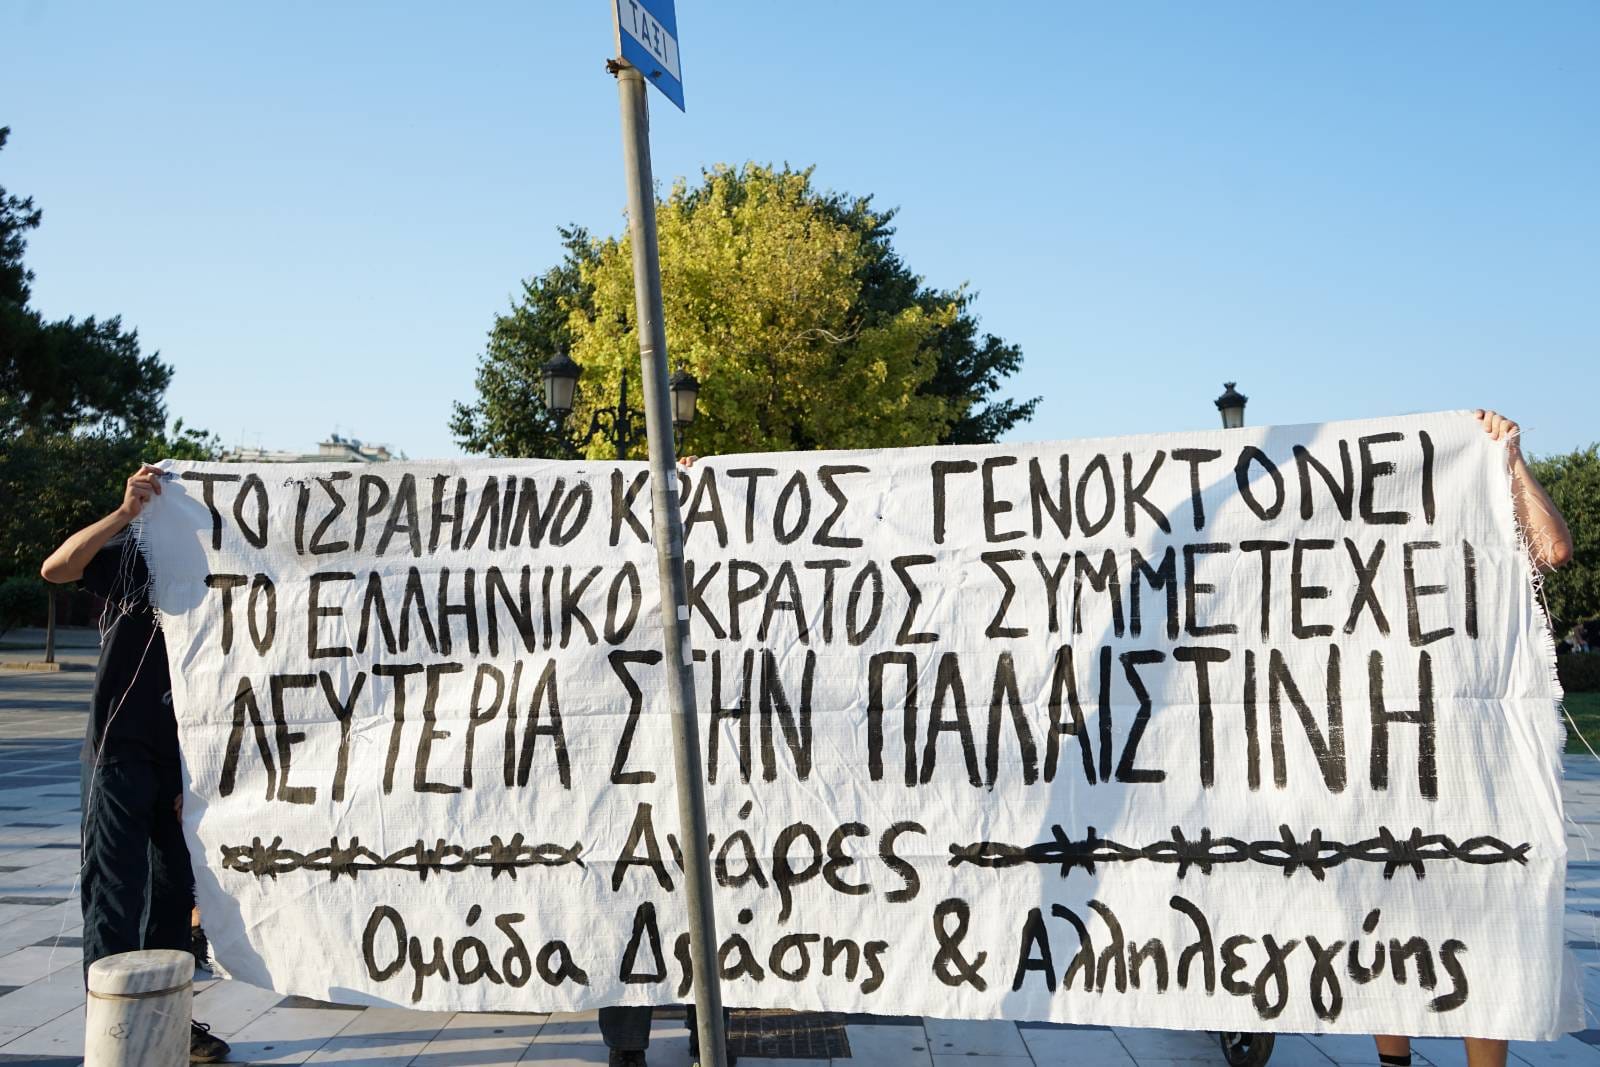 ΤΑΞΙ
ΤΟ ΙΣΡΑΗΛΙΝΟ ΚΡΑΤΟΣ ΓΕΝΟΚΤΟΝΕΙ
ΤΟ ΕΛΛΗΝΙΚΟ ΚΡΑΤΟΣ ΣΥΜΜΕΤΕΧΕΙ
ΛΕΥΤΕΡΙΑ ΣΤΗΝ ΠΑΛΑΙΣΤΙΝΗ
Ανάρες
Ομάδα Δράσης & Αλληλεγγύης